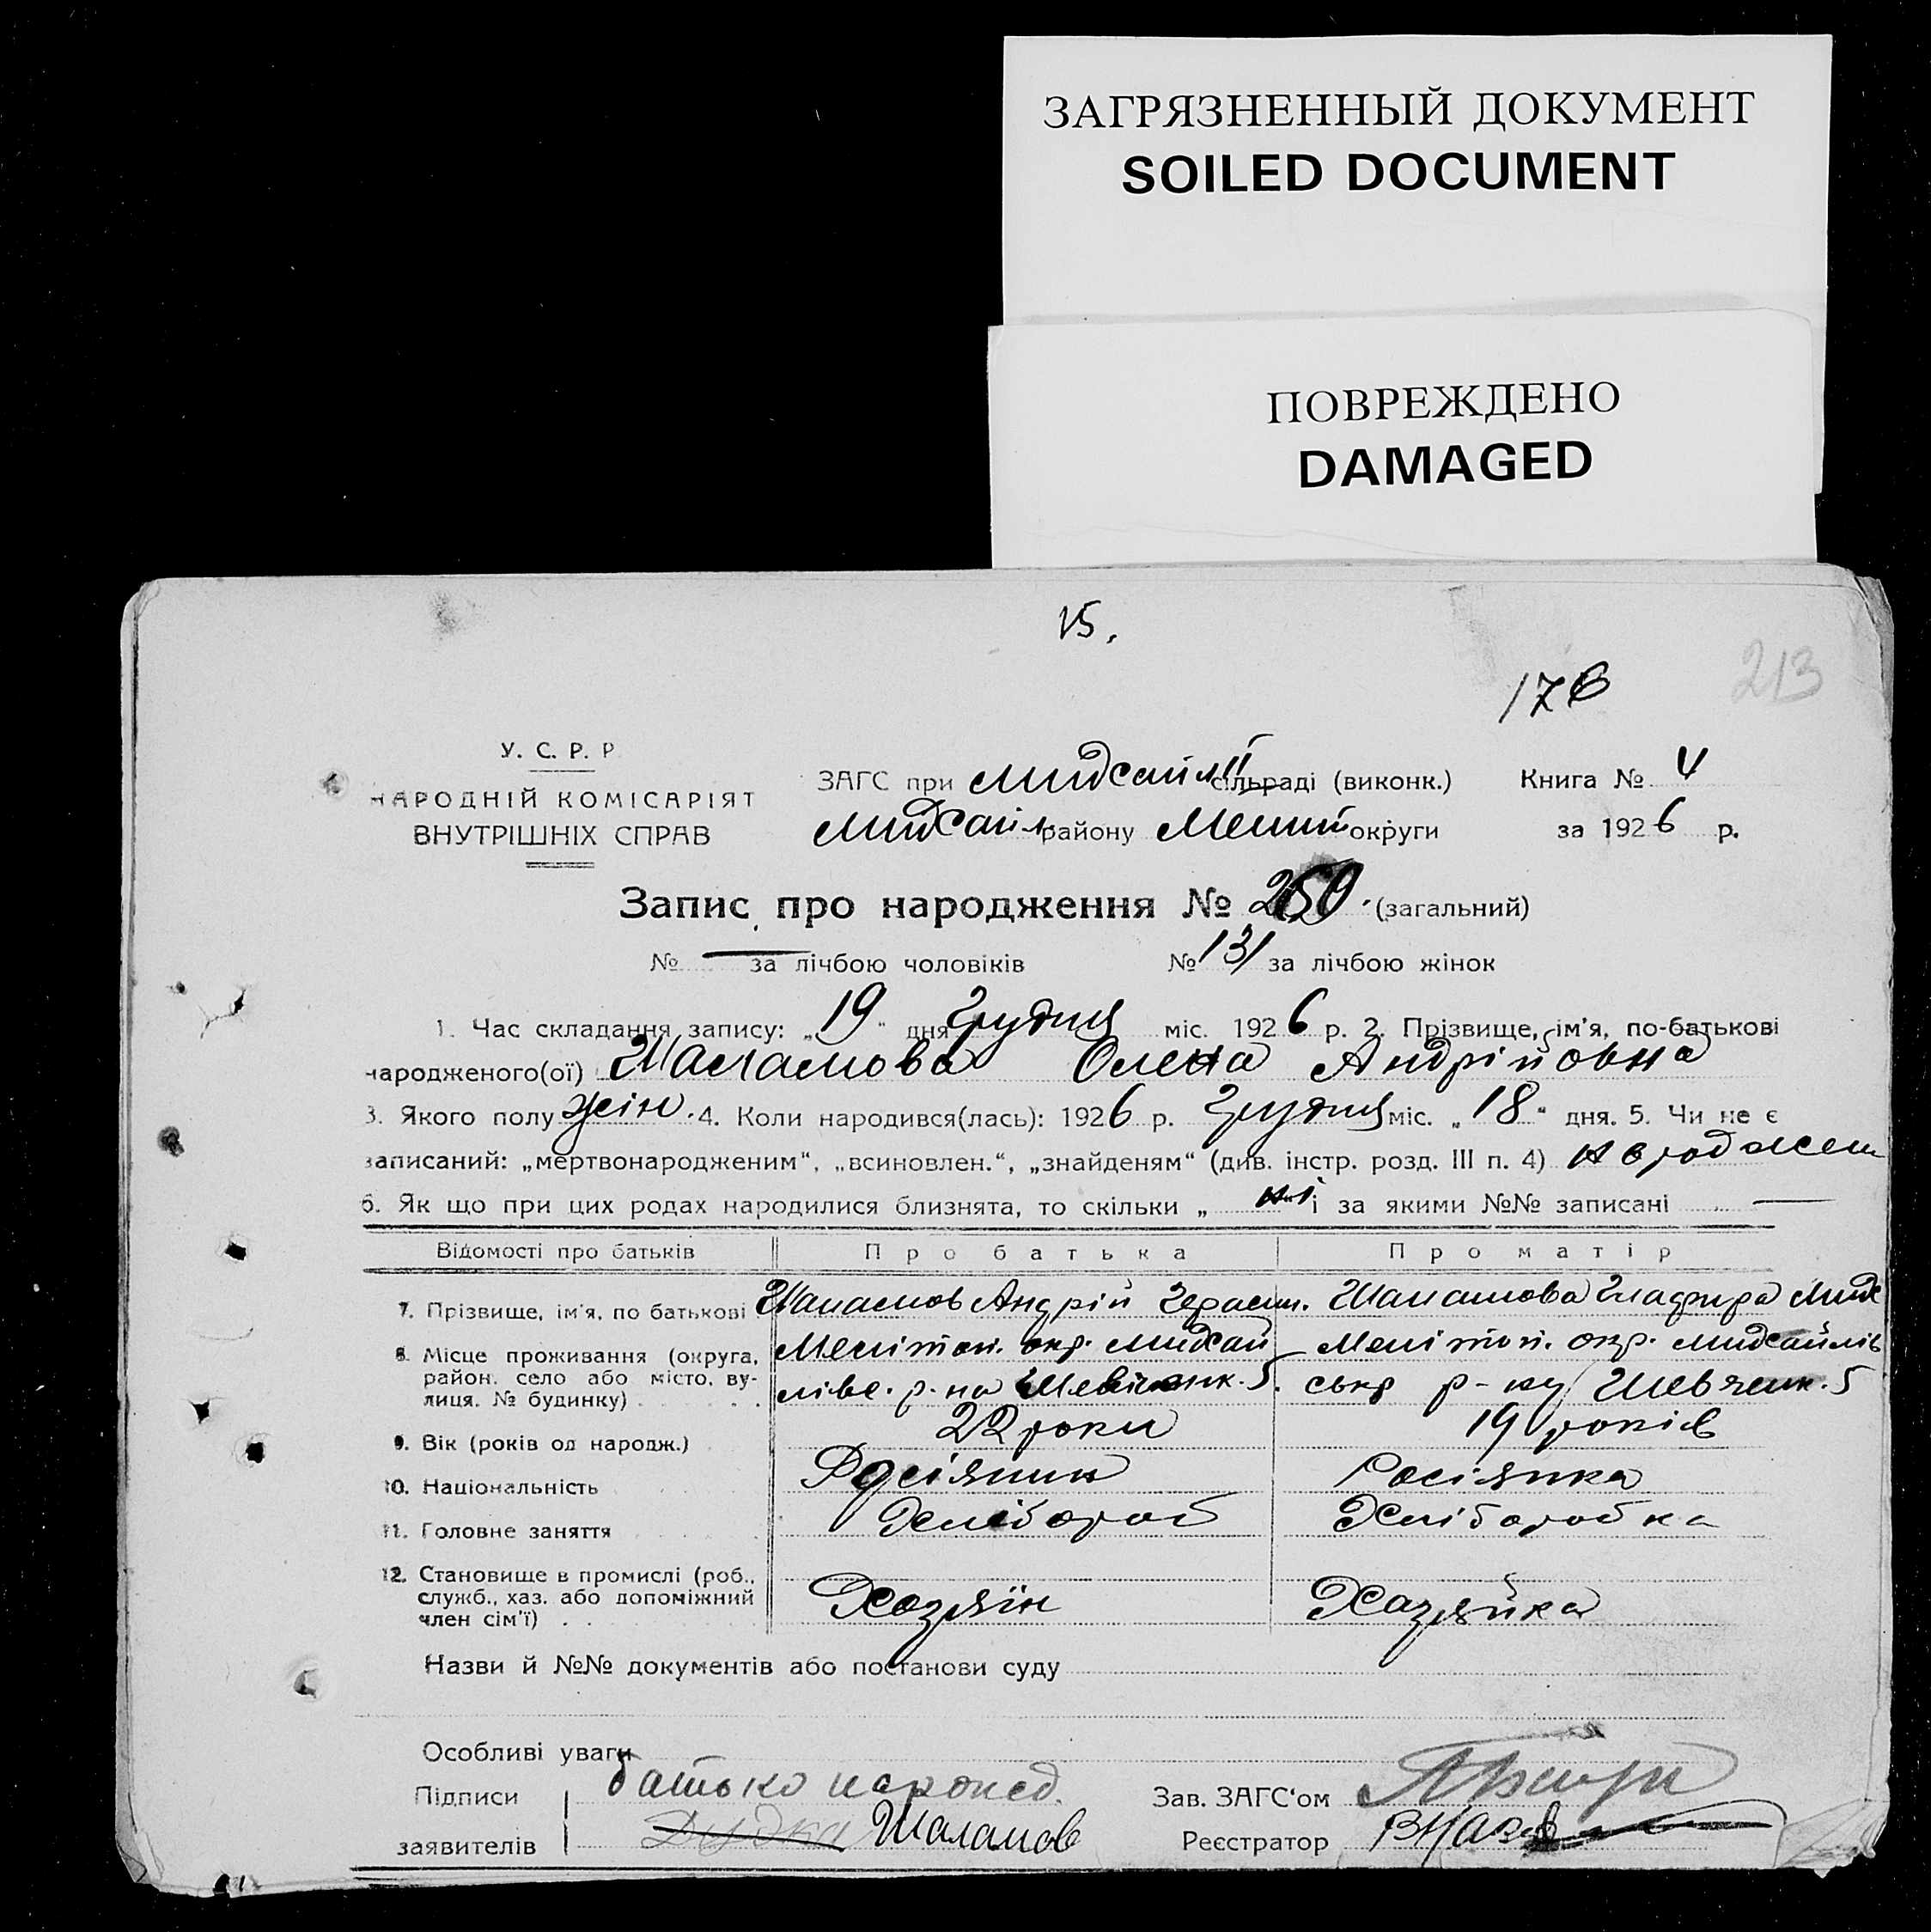 ЗАГРЯЗНЕННЫЙ ДОКУМЕНТ
SOILED DOCUMENT
ПОВРЕЖДЕНО
DAMAGED
15.
176
213
У. С. Р. Р
НАРОДНІЙ КОМІСАРІЯТ
ВНУТРІШНІХ СПРАВ
ЗАГС при Михайлі сільраді (виконк.) Книга № 4
Михайл. району Меліт округи за 1926 р.
Запис про народження № (загальний)
№ — за лічбою чоловіків № 131 за лічбою жінок
1. Час складання запису: „19" дня Грудня міс. 1926 р. 2. Прізвище, ім'я, по-батькові
народженого(ої) Шаламова Олена Андрійовна
3. Якого полу жін. 4. Коли народився(лась): 1926 р. Грудня міс. „18" дня. 5. Чи не є
записаний: „мертвонародженим“, „всиновлен.“, „знайденям“ (див. інстр. розд. III п. 4)
6. Як що при цих родах народилися близнята, то скільки „ і за якими №№ записані —
Відомості про батьків Про батька Про матір
7. Прізвище, ім'я, по батькові Шаламов Андрій Герасим. Шаламова Глафира Мих
8. Місце проживання (округа, район. село або місто, вулиця. № будинку) Мелітоп. окр. Михай Мелітоп. окр. Михайлів
лівс. р-на Шевченк. 5. ськ р-ну Шевченк. 5
9. Вік (років од народж.) 22 роки 19 років
10. Національність Росіянин Росіянка
11. Головне заняття Хлібороб Хліборобка
12. Становище в промислі (роб., служб., хаз. або допоміжний член сім'ї) . . Хозяїн Хазяйка
Назви й №№ документів або постанови суду
Особливі уваги
Підписи батько Зав. ЗАГС'ом
заявителів Шаламов Реєстратор